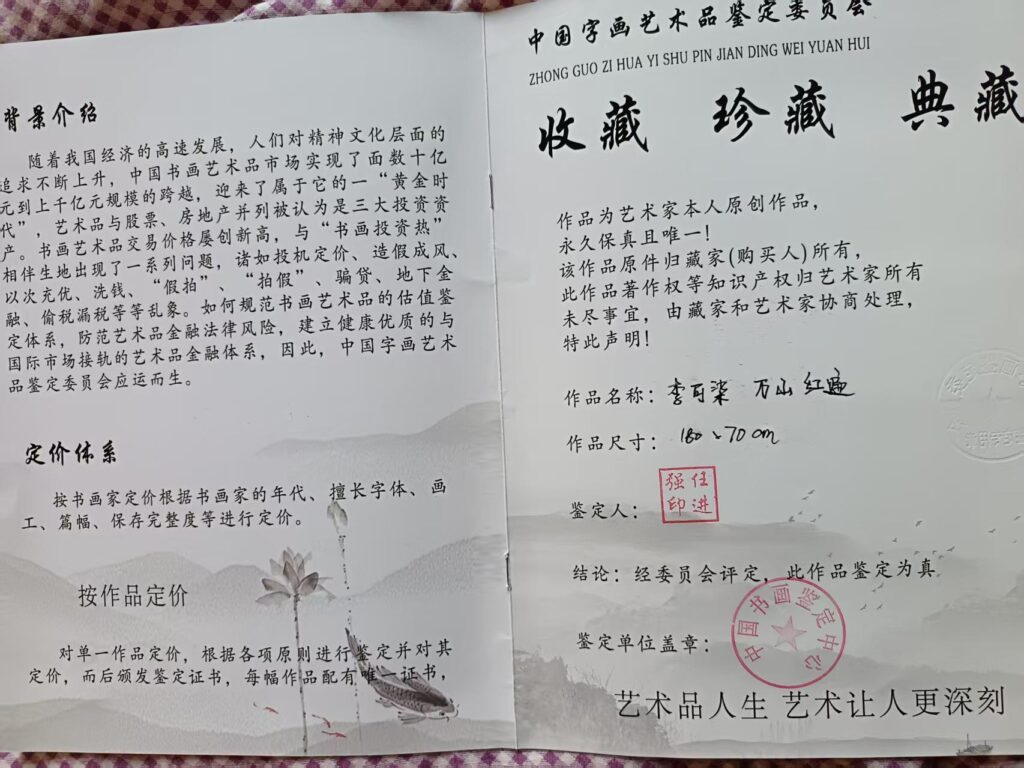 背景介绍
随着我国经济的高速发展，人们对精神文化层面的
追求不断上升，中国书画艺术品市场实现了面数十亿
元到上千亿元规模的跨越，迎来了属于它的一“黄金时
代”，艺术品与股票、房地产并列被认为是三大投资资
产。书画艺术品交易价格屡创新高，与“书画投资热”
相伴生地出现了一系列问题，诸如投机定价、造假成风、
以次充优、洗钱、“假拍”、“拍假”、骗贷、地下金
融、偷税漏税等等乱象。如何规范书画艺术品的估值鉴
定体系，防范艺术品金融法律风险，建立健康优质的与
国际市场接轨的艺术品金融体系，因此，中国字画艺术
品鉴定委员会应运而生。
定价体系
按书画家定价根据书画家的年代、擅长字体、画
工、篇幅、保存完整度等进行定价。
按作品定价
对单一作品定价，根据各项原则进行鉴定并对其
定价，而后颁发鉴定证书，每幅作品配有唯一证书，
中国字画艺术品鉴定委员会
ZHONG GUO ZI HUA YI SHU PIN JIAN DING WEI YUAN HUI
收藏 珍藏 典藏
作品为艺术家本人原创作品，
永久保真且唯一！
该作品原件归藏家(购买人)所有，
此作品著作权等知识产权归艺术家所有
未尽事宜，由藏家和艺术家协商处理，
特此声明！
作品名称：李可染 万山红遍
作品尺寸：180、70cm
鉴定人：
任进强印
结论：经委员会评定，此作品鉴定为真
鉴定单位盖章：
中国书画鉴定中心
艺术品人生 艺术让人更深刻